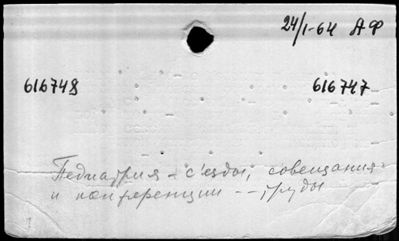 24/1-64 АФ
616748 616747
Педиатрия - с'езды, совещания
и конференции -- труды